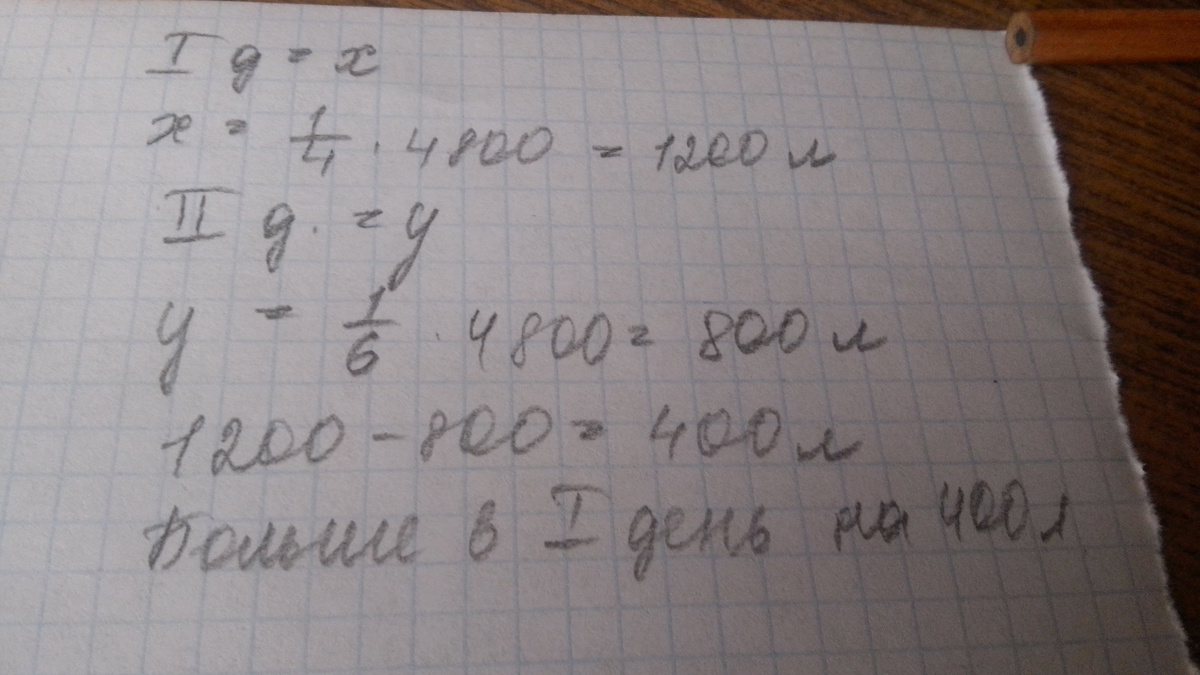 I д = x
x = 1/4 · 4800 = 1200 л
II д. = y
y = 1/6 · 4800 = 800 л
1200 - 800 = 400 л
Больше в I день на 400 л